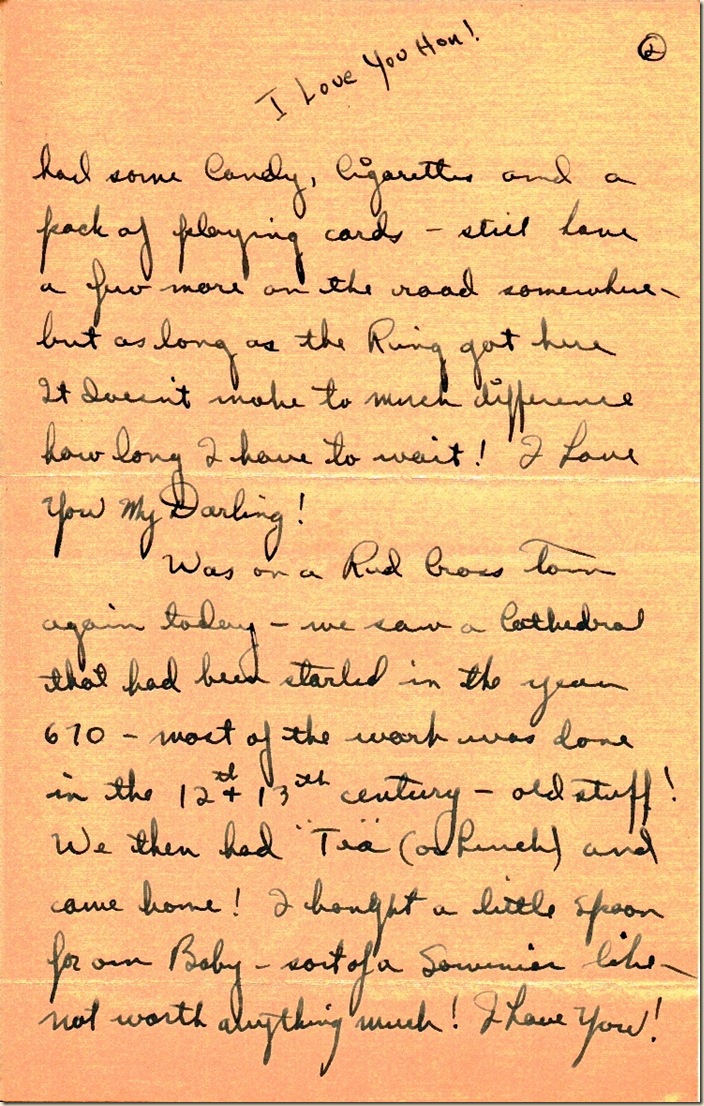 I Love You Hon!
2
had some Candy, Cigarettes and a
pack of playing cards - still have
a few more on the road somewhere -
but as long as the Ring got here
It doesn't make to much difference
how long I have to wait! I Love
You My Darling!
Was on a Red Cross Tour
again today - we saw a Cathedral
that had been started in the year
670 - most of the work was done
in the 12th + 13th century - old stuff!
We then had "Tea" (or Lunch) and
came home! I bought a little spoon
for our Baby - sort of a Souvenier like -
not worth anything much! I Love You!